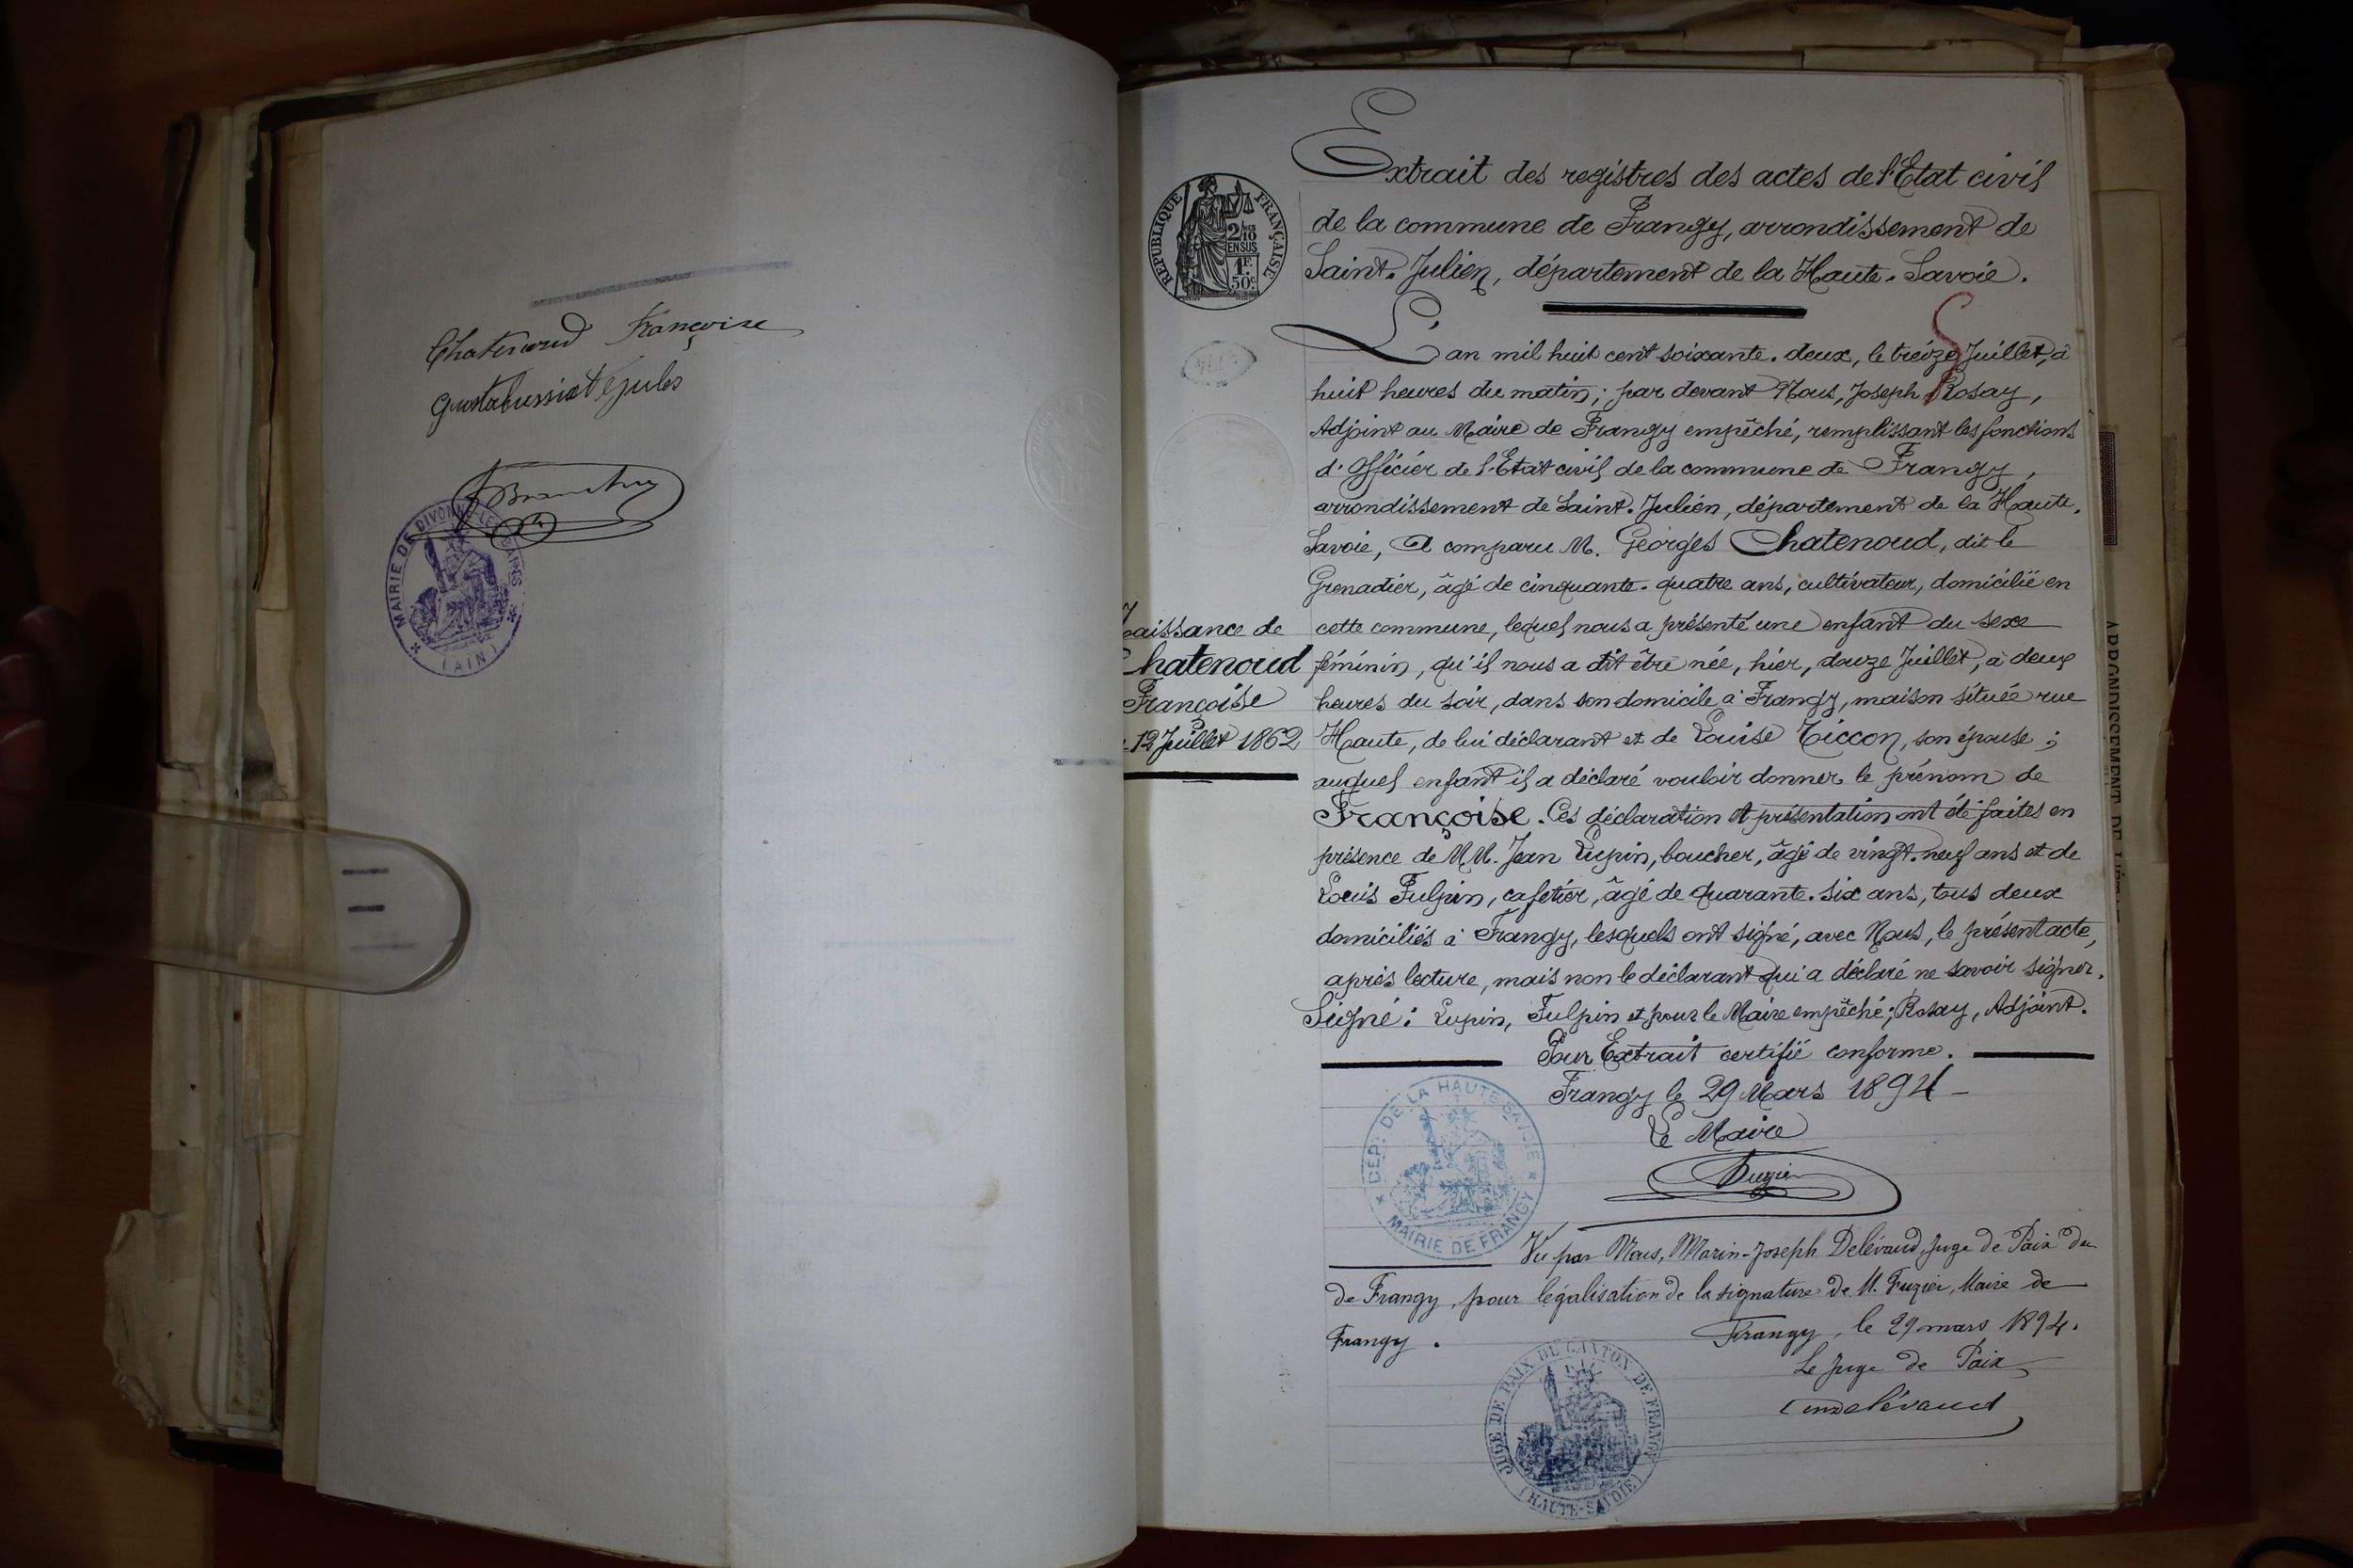 Chatenoud Françoise
Jules
MAIRIE DE DIVONNE-LES-BAINS
(AIN)
RÉPUBLIQUE FRANÇAISE
2/10 EN SUS
1F. 50c
Extrait des registres des actes de l'Etat civil
de la commune de Frangy, arrondissement de
Saint-Julien, département de la Haute-Savoie.
L'an mil huit cent soixante-deux, le treize Juillet, à
huit heures du matin; par devant Nous, Joseph Rosay,
Adjoint au Maire de Frangy empêché, remplissant les fonctions
d'Officier de l'Etat civil de la commune de Frangy,
arrondissement de Saint-Julien, département de la Haute-
Savoie, A comparu M. Georges Chatenoud, dit le
Grenadier, âgé de cinquante-quatre ans, cultivateur, domicilié en
cette commune, lequel nous a présenté une enfant du sexe
féminin, qu'il nous a dit être née, hier, douze Juillet, à deux
heures du soir, dans son domicile à Frangy, maison située rue
Haute, de lui déclarant et de Louise Ticcon, son épouse;
auquel enfant il a déclaré vouloir donner le prénom de
Françoise. Ces déclaration et présentation ont été faites en
présence de MM. Jean Lupin, boucher, âgé de vingt-neuf ans et de
Louis Fulpin, cafetier, âgé de quarante-six ans, tous deux
domiciliés à Frangy, lesquels ont signé, avec Nous, le présent acte,
après lecture, mais non le déclarant qui a déclaré ne savoir signer.
Signé: Lupin, Fulpin et pour le Maire empêché; Rosay, Adjoint.
Pour Extrait certifié conforme.
Frangy le 29 Mars 1894
Le Maire
Fuzier
Naissance de
Chatenoud
Françoise
12 Juillet 1862
DEPT DE LA HAUTE SAVOIE
MAIRIE DE FRANGY
Vu par Nous, Marin-Joseph Delévaud, Juge de Paix du
de Frangy, pour légalisation de la signature de M. Fuzier, Maire de
Frangy.
Frangy, le 29 mars 1894.
Le Juge de Paix
Delévaud
JUGE DE PAIX DU CANTON DE FRANGY
(HAUTE-SAVOIE)
ARRONDISSEMENT DE